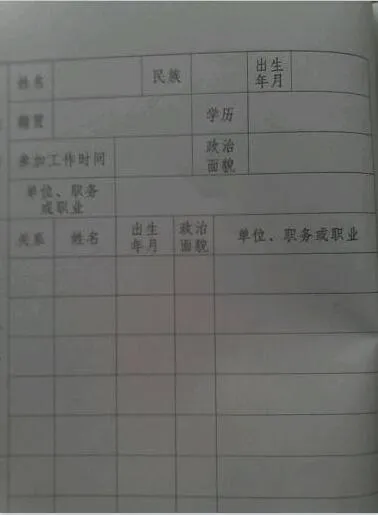 姓名 民族 出生年月
籍贯 学历
参加工作时间 政治面貌
单位、职务或职业
关系 姓名 出生年月 政治面貌 单位、职务或职业